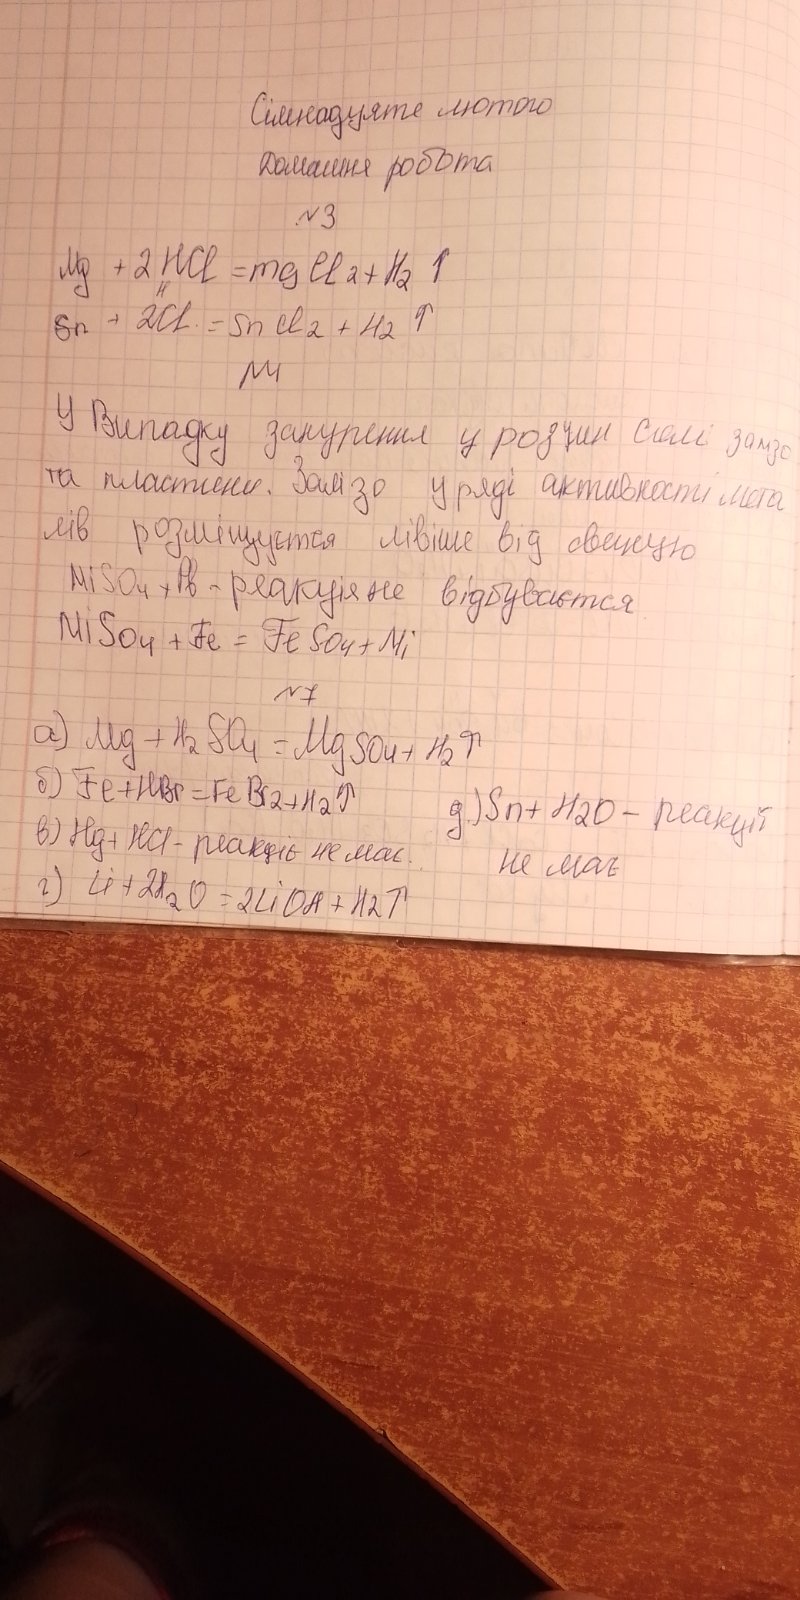 Сімнадцяте лютого
Домашня робота
№3
Mg + 2HCl = mgCl2 + H2 ↑
Sn + 2HCl = SnCl2 + H2 ↑
№4
У випадку занурення у розчин солі заліз
та пластини. Залізо у ряді активності мета
лів розміщується лівіше від свинцю
NiSO4 + Pb - реакція не відбувається
NiSO4 + Fe = FeSO4 + Ni
№7
а) Mg + H2SO4 = MgSO4 + H2↑
б) Fe + HBr = FeBr2 + H2↑
в) Hg + HCl - реакції немає.
г) Li + 2H2O = 2LiOH + H2↑
д) Sn + H2O - реакції
не має